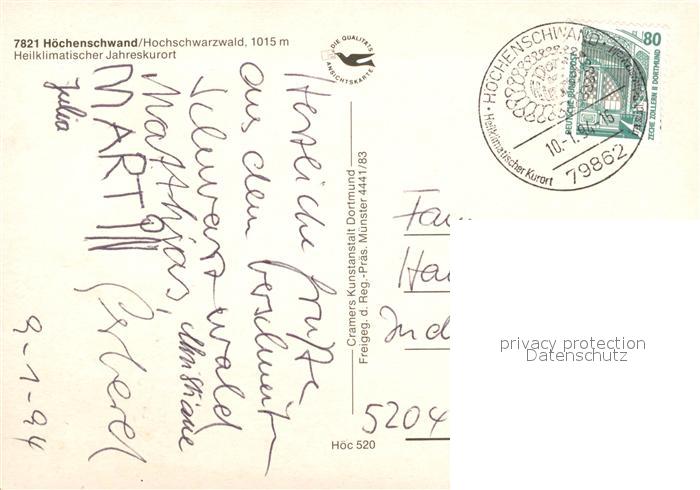 7821 Höchenschwand/Hochschwarzwald, 1015 m
Heilklimatischer Jahreskurort
DIE QUALITÄTS
ANSICHTSKARTE
HÖCHENSCHWAND
Heilklimatischer Kurort
10.-1.94-16
79862
80
DEUTSCHE BUNDESPOST
ZECHE ZOLLERN II DORTMUND
Herzliche Grüße
aus dem verschneiten
Schwarzwald
Matthias, Christiane
MARTIN
Julia
9-1-94
Cramers Kunstanstalt Dortmund
Freigeg. d. Reg.-Präs. Münster 4441/83
Fam
Ha
Ind
5204
Höc 520
privacy protection
Datenschutz